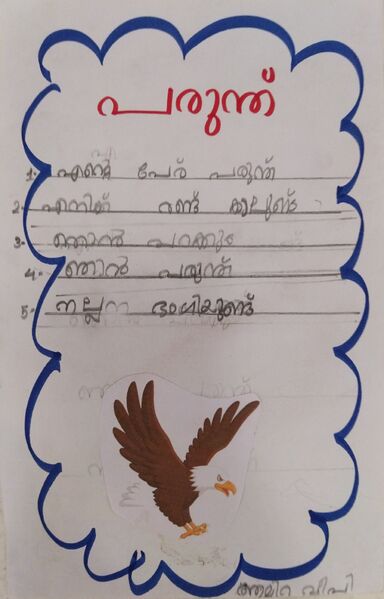 പരുന്ത്
1. എന്റെ പേര് പരുന്ത്
2. എനിക്ക് രണ്ട് കാലുണ്ട്
3. ഞാൻ പറക്കും
4. ഞാൻ പരുന്ത്
5. നല്ല ഭംഗിയുണ്ട്
വി പി